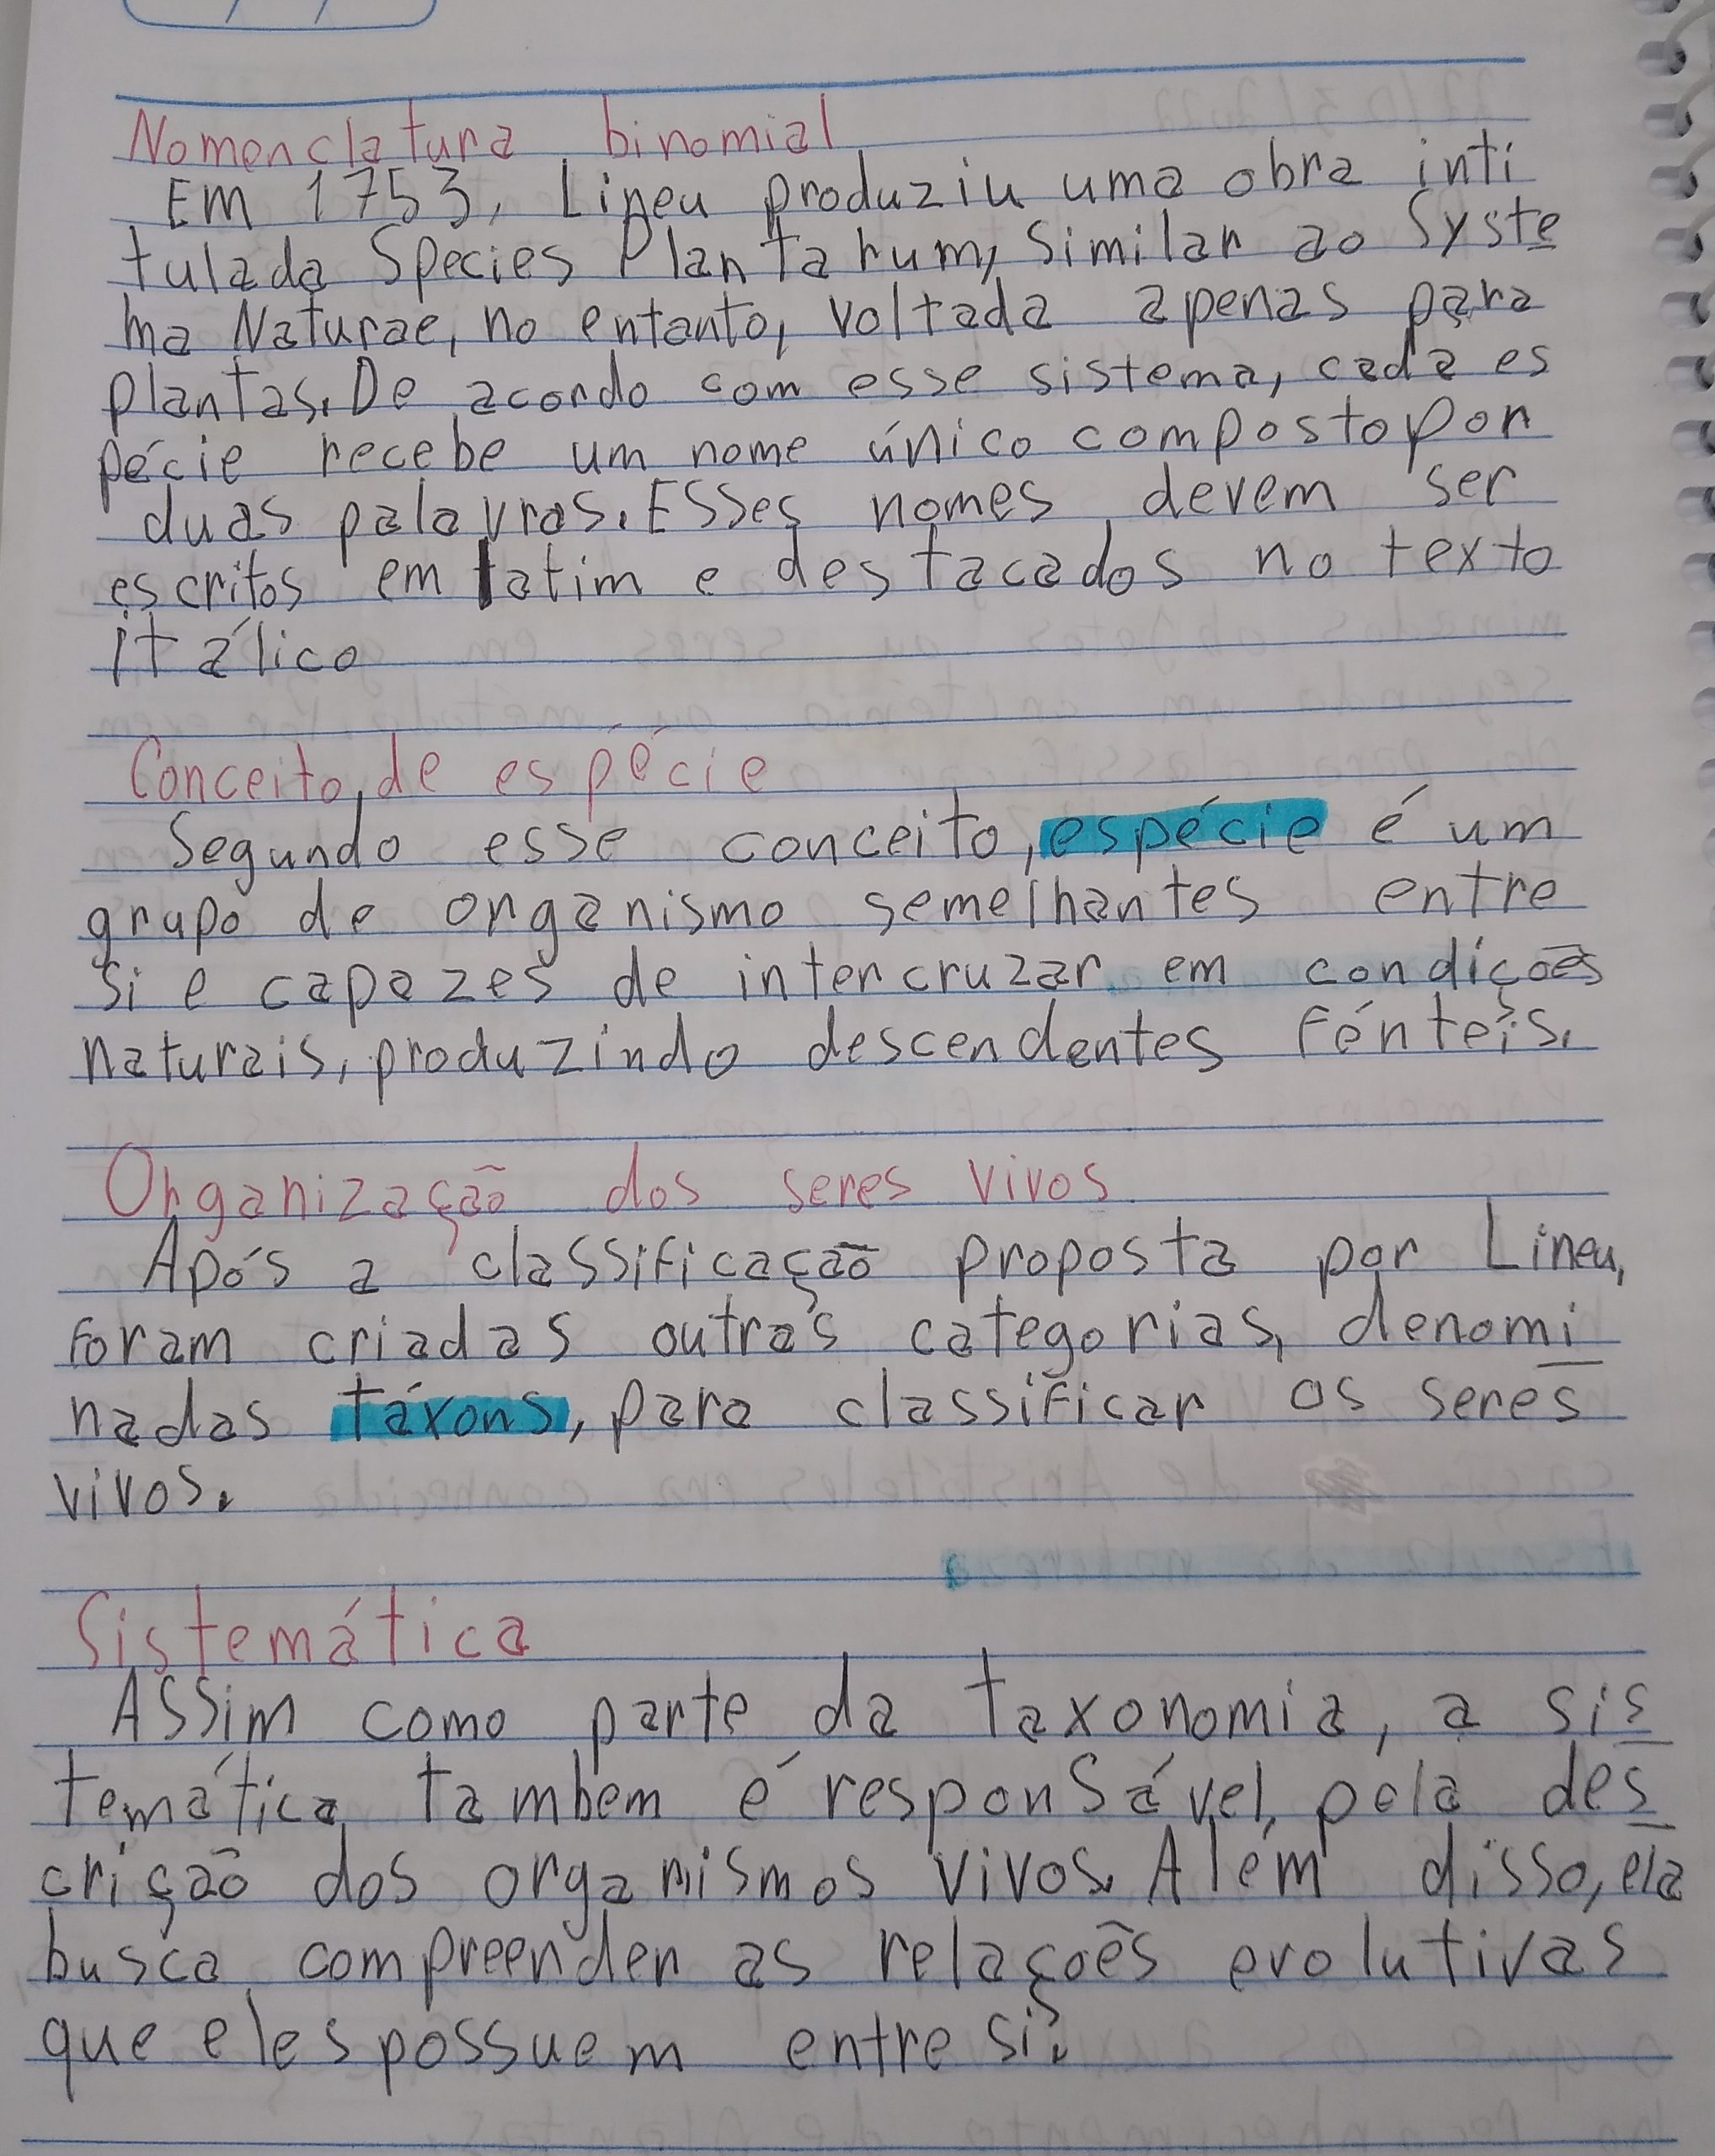 Nomenclatura binomial
Em 1753, Lineu produziu uma obra inti
tulada Species Plantarum, Similar ao Syste
ma Naturae, no entanto, voltada apenas para
plantas. De acordo com esse sistema, cada es
pécie recebe um nome único composto por
duas palavras. Esses nomes devem ser
escritos em latim e destacados no texto
itálico
Conceito de espécie
Segundo esse conceito, espécie é um
grupo de organismo semelhantes entre
si e capazes de intercruzar em condições
naturais, produzindo descendentes férteis.
Organização dos seres vivos
Após a classificação proposta por Lineu,
foram criadas outras categorias, denomi
nadas táxons, para classificar os seres
vivos.
Sistemática
Assim como parte da taxonomia, a sis
temática também é responsável pela des
crição dos organismos vivos. Além disso, ela
busca compreender as relações evolutivas
que eles possuem entre si.